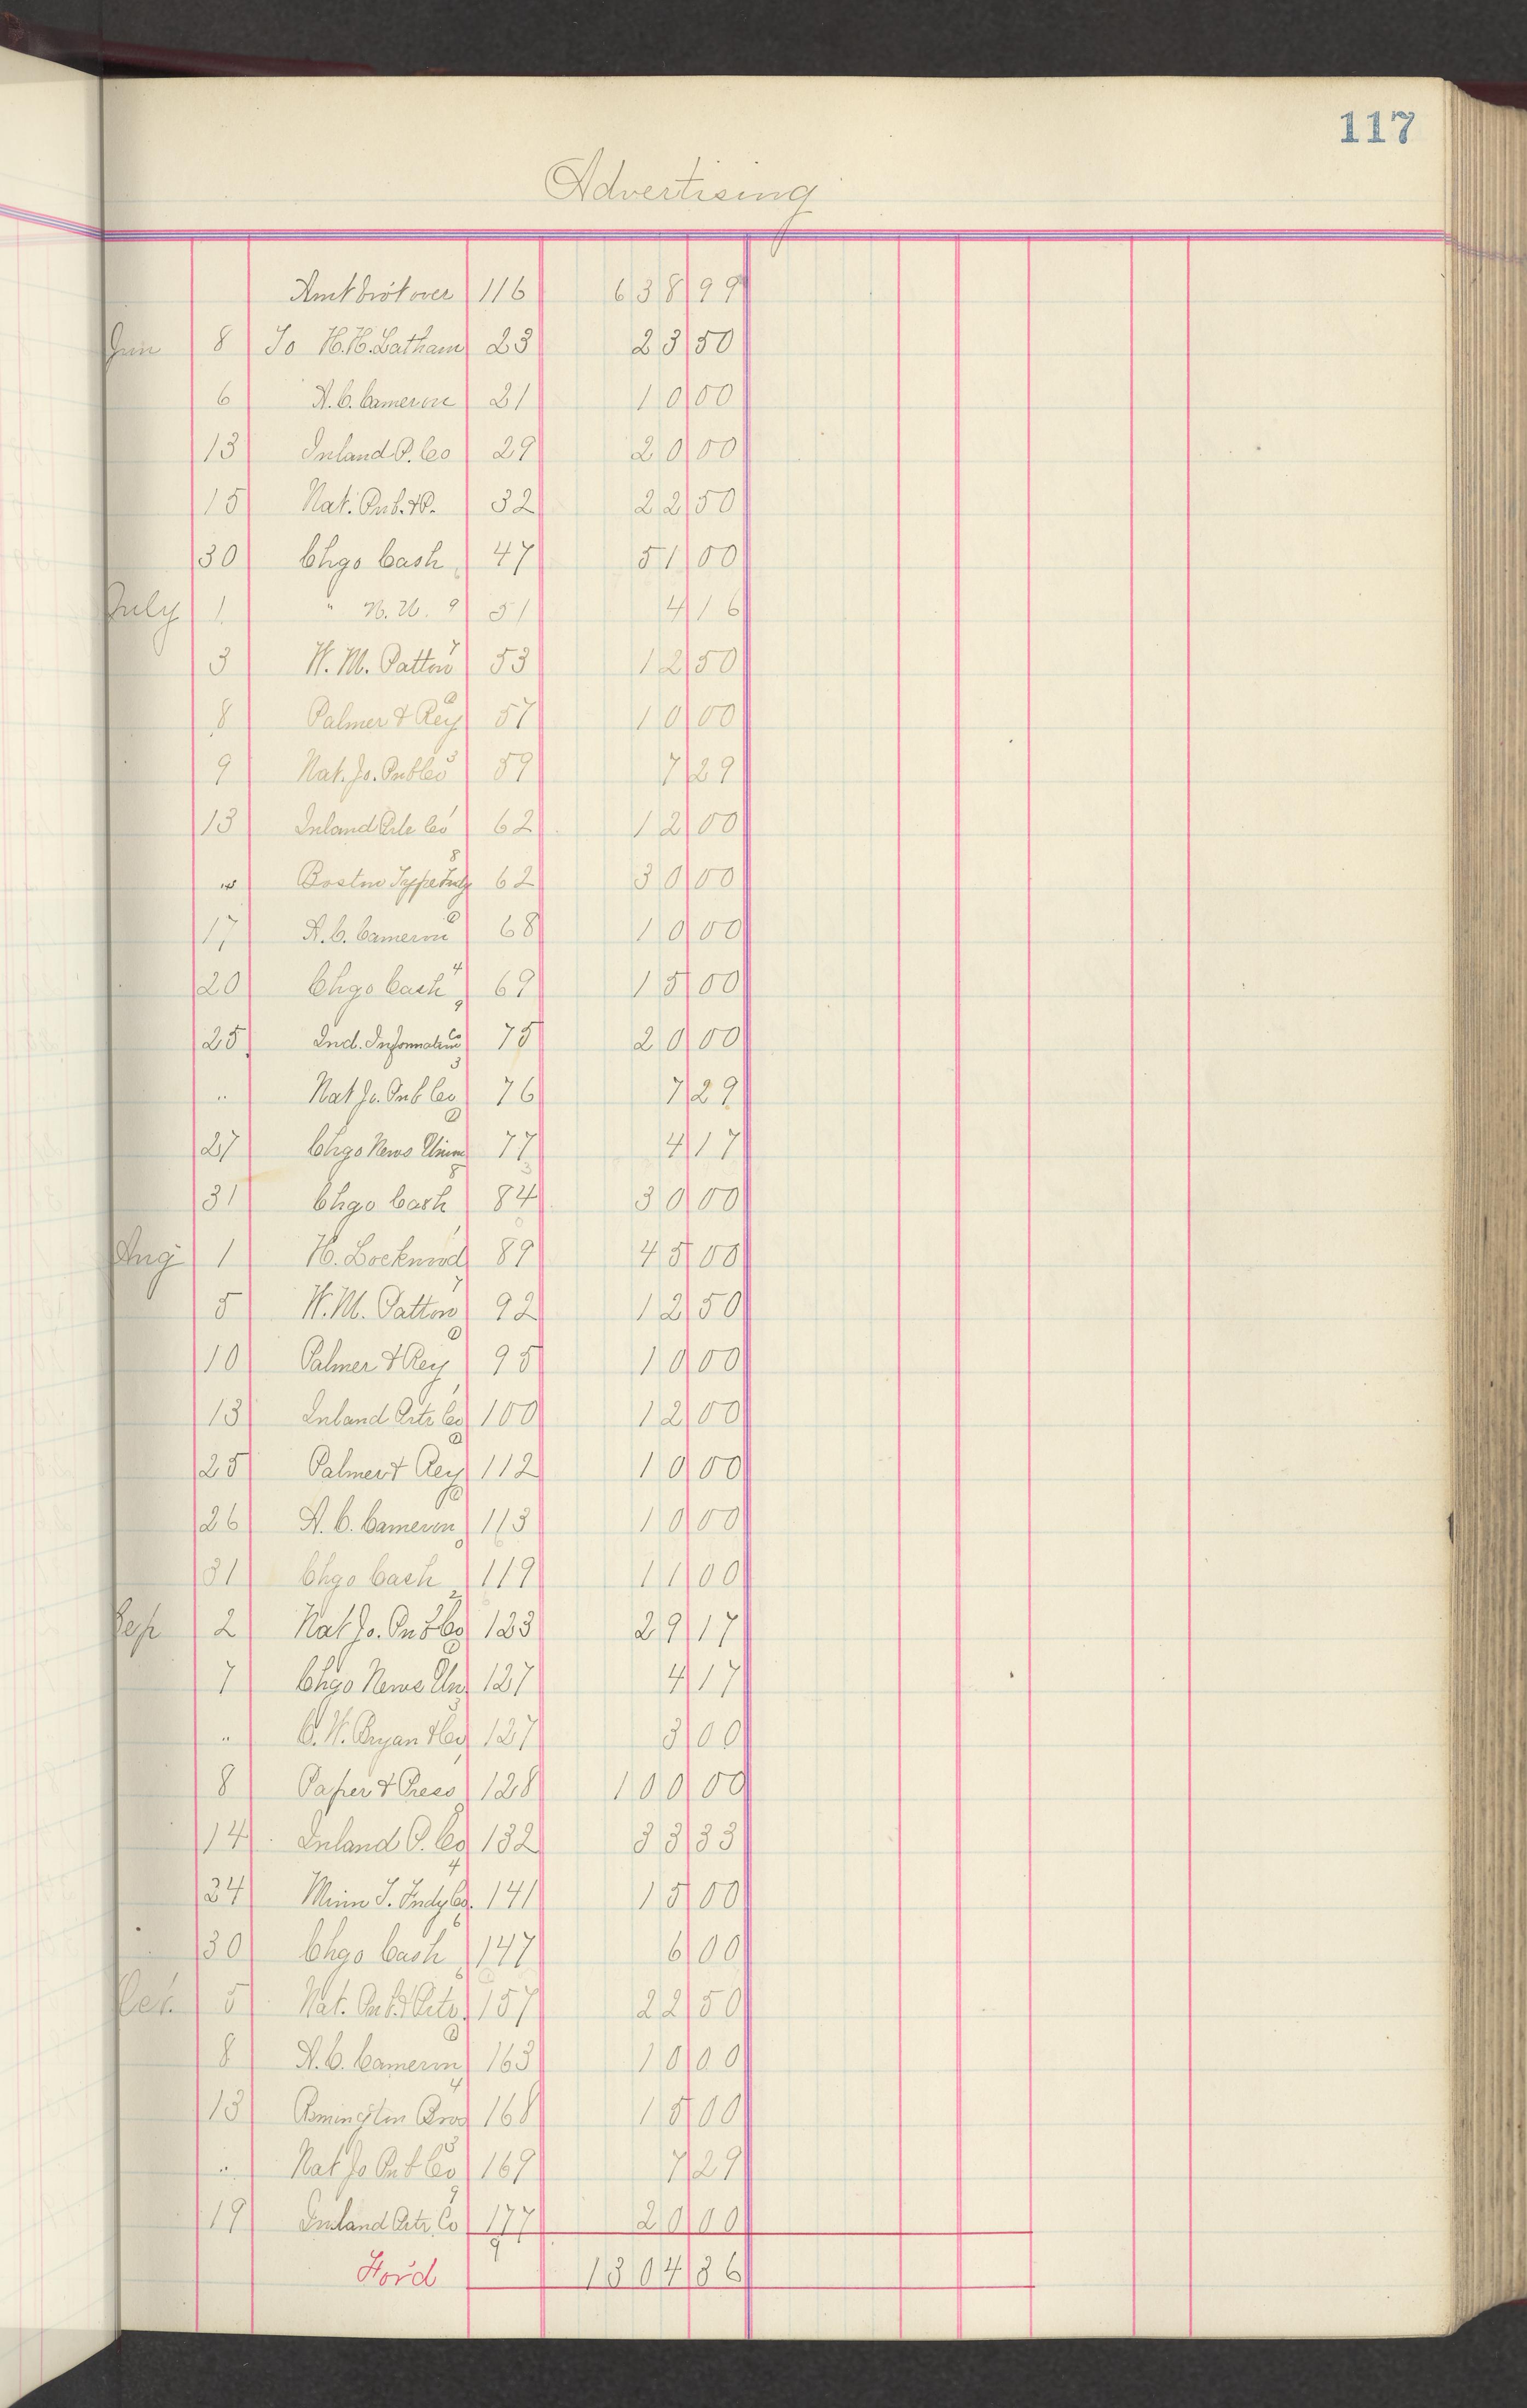 117
Advertising
Amt brot over 116 638 99
Jun 8 To H.H. Latham 23 23 50
6 A.C. Cameron 21 10 00
13 Inland P. Co 29 20 00
15 Nat. Pub. & P. 32 22 50
30 Chgo Cash 47 51 00
July 1 " N.U. 9 51 4 16
3 W.M. Patton 53 12 50
8 Palmer & Rey 57 10 00
9 Nat. Jo. Pub Co 59 7 29
13 Inland Co 62 12 00
" Boston Type Fndy 62 30 00
17 A.C. Cameron 68 10 00
20 Chgo Cash 69 15 00
25 Ind. Information Co 75 20 00
" Nat Jo. Pub Co 76 7 29
27 Chgo News Union 77 4 17
31 Chgo Cash 84 30 00
Aug 1 H. Lockwood 89 45 00
5 W.M. Patton 92 12 50
10 Palmer & Rey 95 10 00
13 Inland Ptr Co 100 12 00
25 Palmer & Rey 112 10 00
26 A.C. Cameron 113 10 00
31 Chgo Cash 119 11 00
Sep 2 Nat Jo. Pub Co 123 29 17
7 Chgo News Un 127 4 17
" C.W. Bryan & Co 127 3 00
8 Paper & Press 128 100 00
14 Inland P. Co 132 33 33
24 Minn T. Fndy Co. 141 15 00
30 Chgo Cash 147 6 00
Oct. 5 Nat. Pub. & Ptr 157 22 50
8 A.C. Cameron 163 10 00
13 Bros 168 15 00
" Nat Jo Pub Co 169 7 29
19 Inland Ptr Co 177 20 00
Ford 1304 36